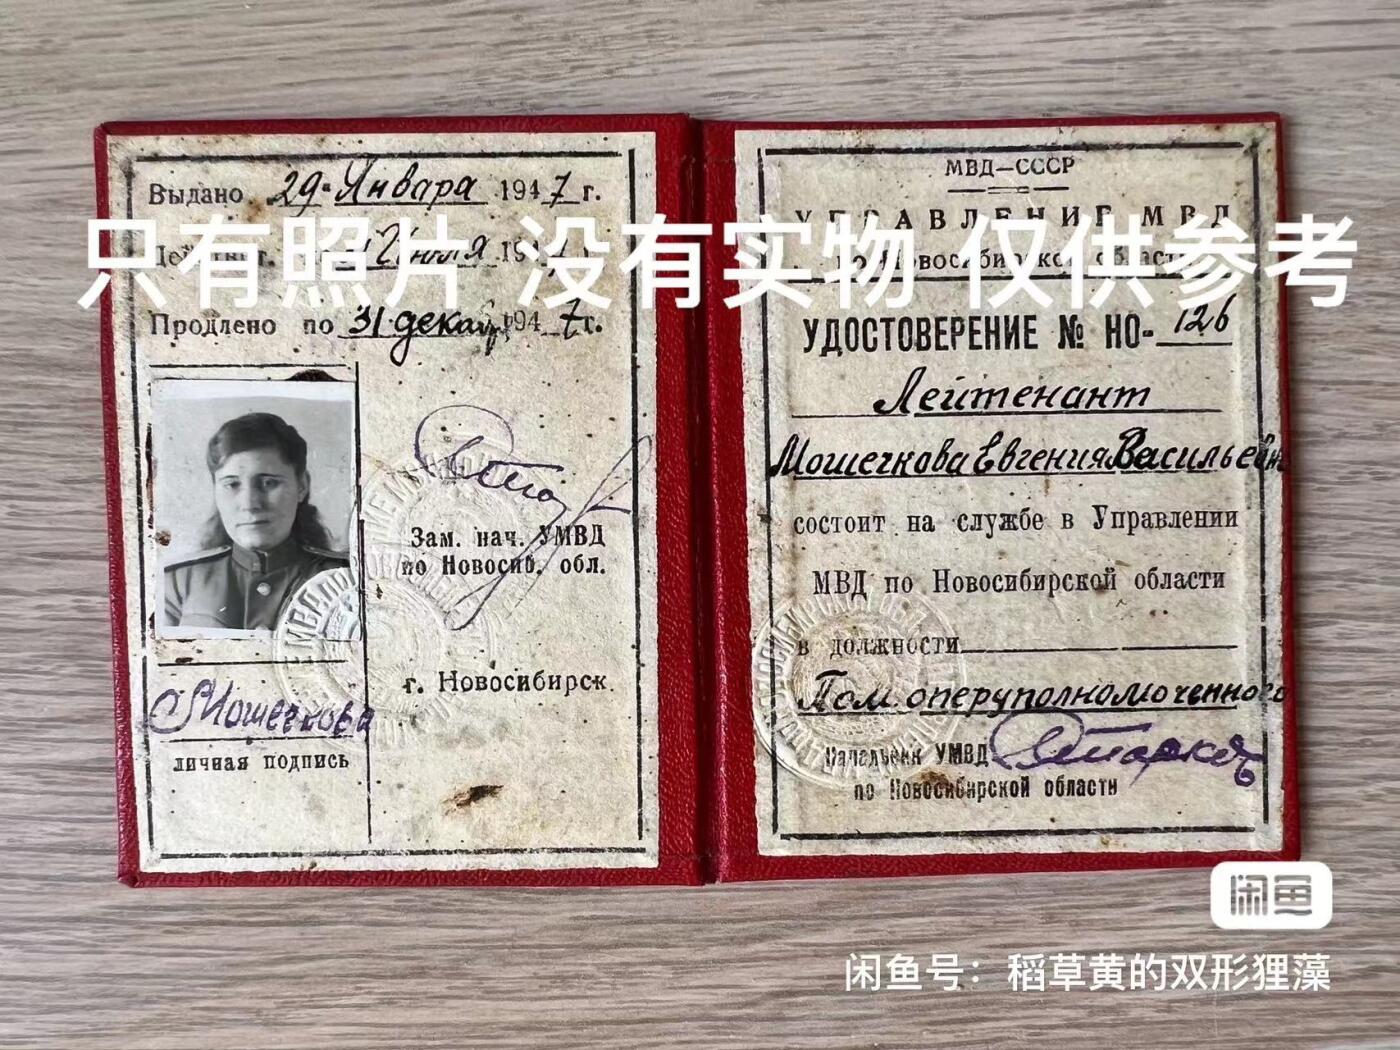 Выдано 29 Января 1947 г.
Действ. Июля 194 г.
Продлено по 31 декабр 1947 г.
Зам. нач. УМВД
по Новосиб. обл.
г. Новосибирск.
Мошечкова
личная подпись
МВД—СССР
УПРАВЛЕНИЕ МВД
по Новосибирской области
УДОСТОВЕРЕНИЕ № НО-126
Лейтенант
Мошечкова Евгения Васильевн
состоит на службе в Управлении
МВД по Новосибирской области
в должности
Пом. оперуполномоченного
Начальник УМВД
по Новосибирской области
只有照片 没有实物 仅供参考
闲鱼
闲鱼号：稻草黄的双形狸藻